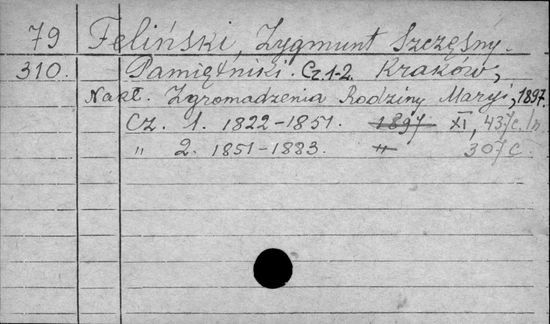 79 Feliński, Zygmunt Szczęsny.
310. Pamiętniki. Cz. 1-2. Kraków,
Nakł. Zgromadzenia Rodziny Maryi, 1897.
Cz. 1. 1822-1851. 1897 XI, 437c.
" 2. 1851-1883. " 307c.